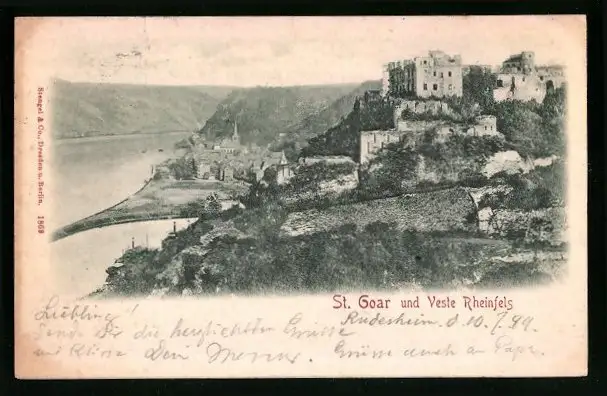 Stengel & Co., Dresden u. Berlin. 1869
St. Goar und Veste Rheinfels
Liebling! Rüdesheim d 10./7. 99.
Sende Dir die herzlichsten Grüsse
und Küsse Dein Grüsse auch an Papa.